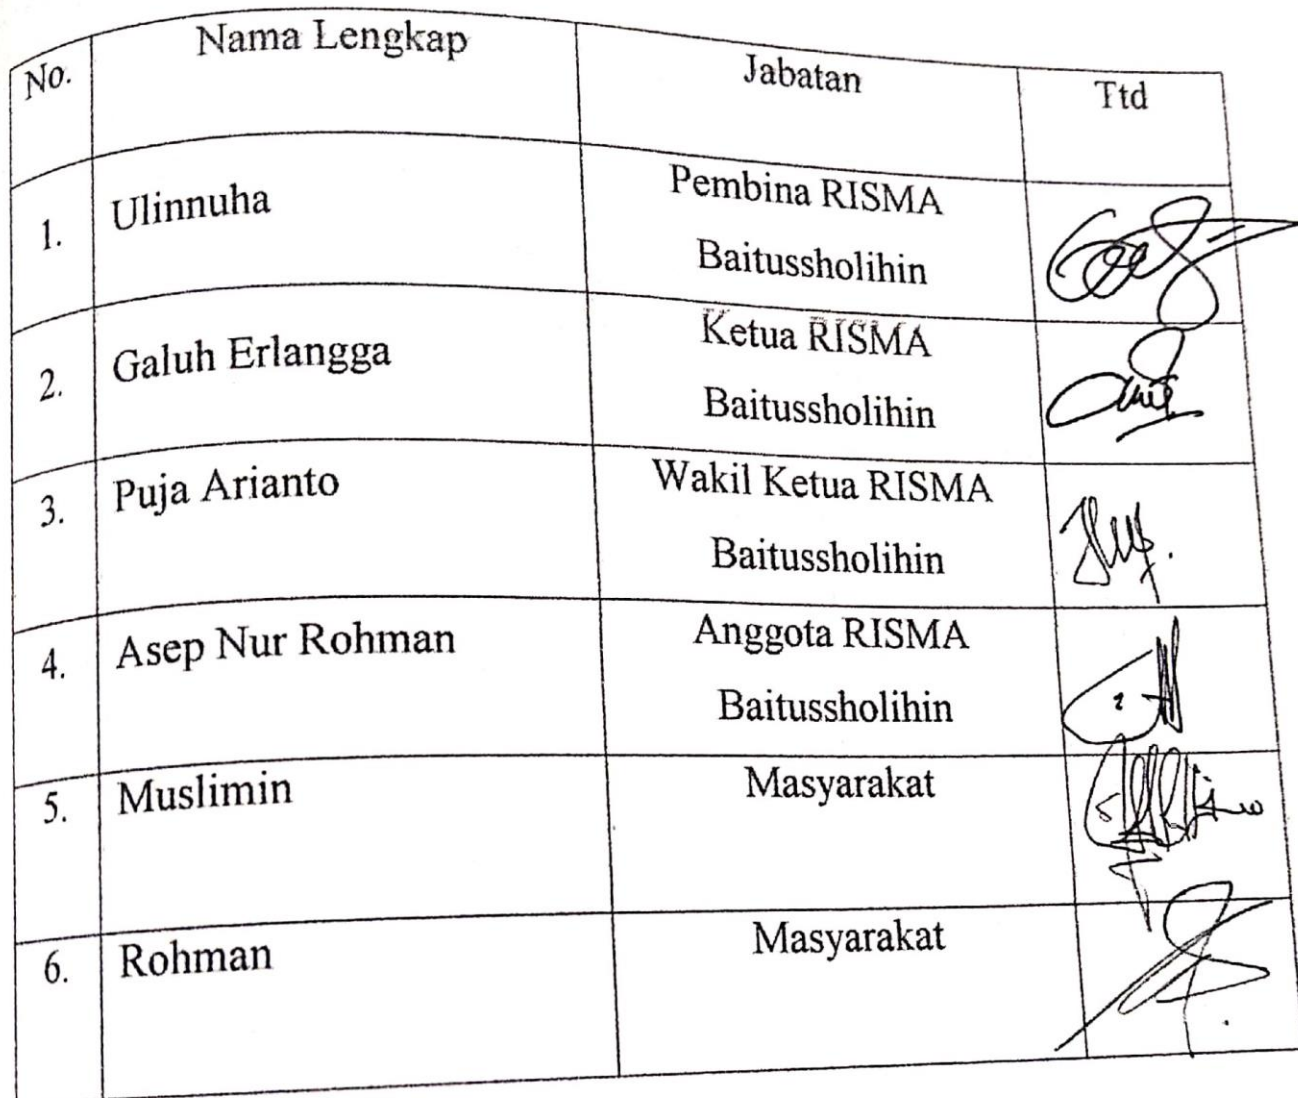 No. Nama Lengkap Jabatan Ttd
1. Ulinnuha Pembina RISMA
Baitussholihin
2. Galuh Erlangga Ketua RISMA
Baitussholihin
3. Puja Arianto Wakil Ketua RISMA
Baitussholihin
4. Asep Nur Rohman Anggota RISMA
Baitussholihin
5. Muslimin Masyarakat
6. Rohman Masyarakat